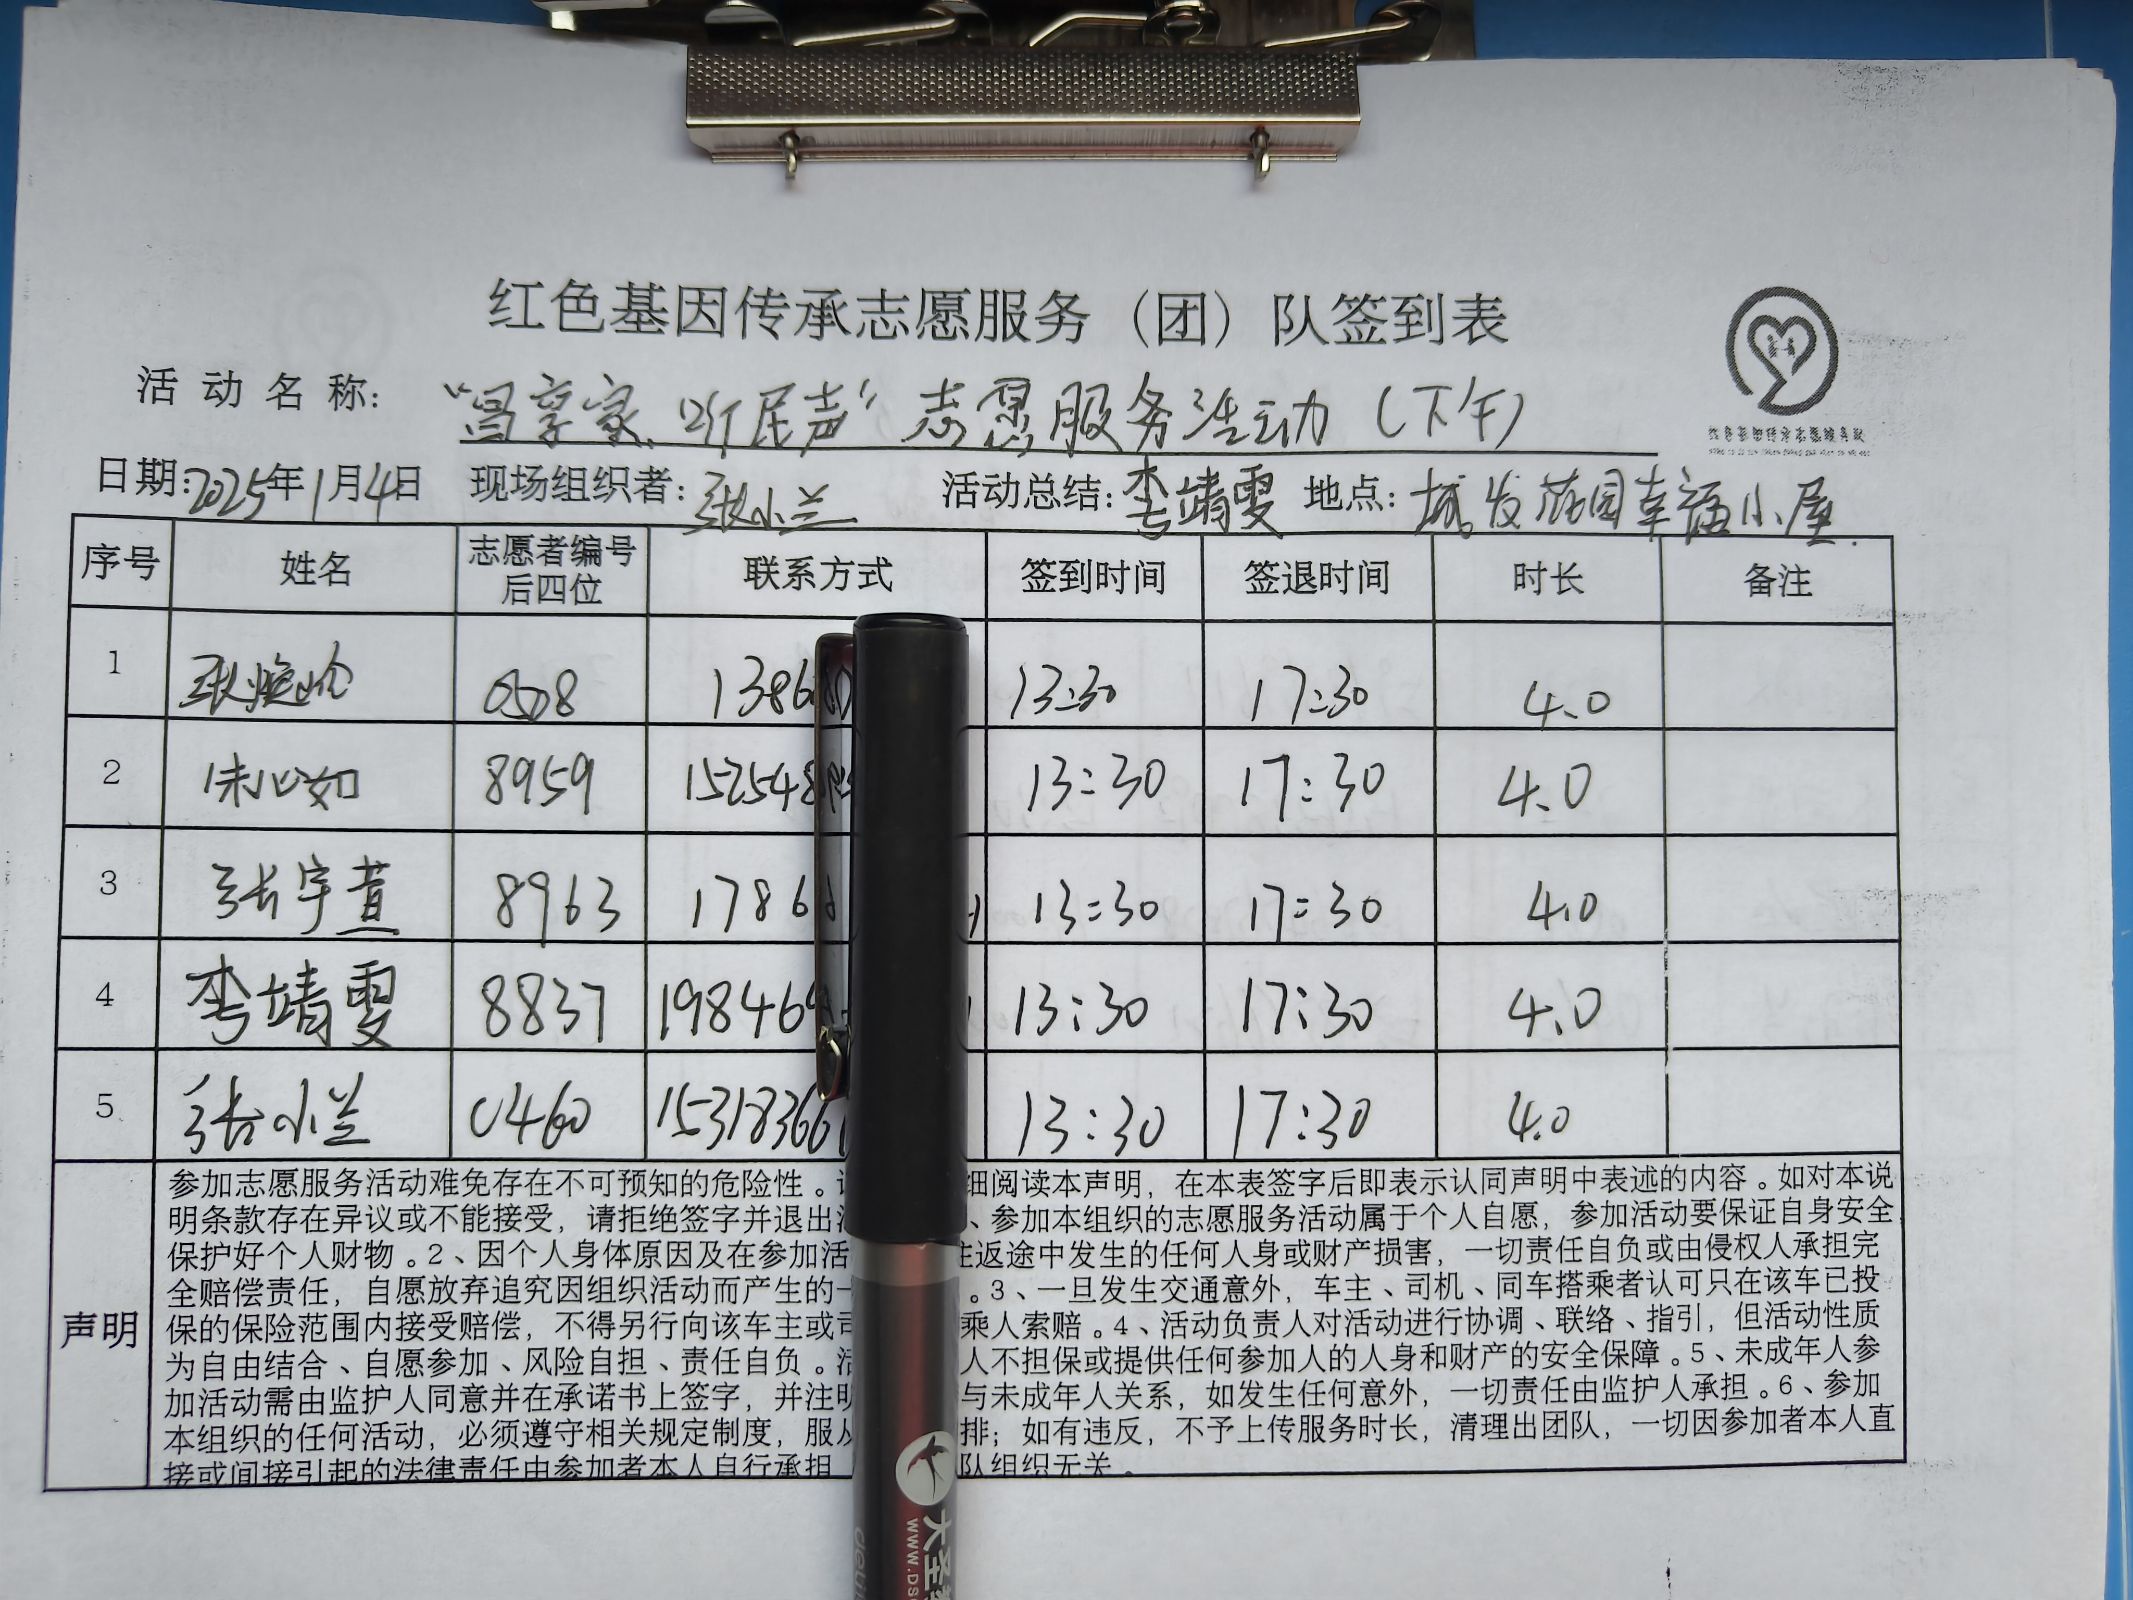 红色基因传承志愿服务（团）队签到表
活动名称: “冒享家、听民声”志愿服务活动（下午）
日期: 2025年1月4日 现场组织者: 张小兰 活动总结: 李靖雯 地点: 城发花园幸福小屋
序号 姓名 志愿者编号后四位 联系方式 签到时间 签退时间 时长 备注
1 张晓 0508 1386 13:30 17:30 4.0
2 朱心如 8959 152548 13:30 17:30 4.0
3 张宇萱 8963 1786 13:30 17:30 4.0
4 李靖雯 8837 198469 13:30 17:30 4.0
5 张小兰 0460 15318366 13:30 17:30 4.0
声明
参加志愿服务活动难免存在不可预知的危险性。 细阅读本声明，在本表签字后即表示认同声明中表述的内容。如对本说
明条款存在异议或不能接受，请拒绝签字并退出 、参加本组织的志愿服务活动属于个人自愿，参加活动要保证自身安全
保护好个人财物。2、因个人身体原因及在参加活 返途中发生的任何人身或财产损害，一切责任自负或由侵权人承担完
全赔偿责任，自愿放弃追究因组织活动而产生的一 。3、一旦发生交通意外，车主、司机、同车搭乘者认可只在该车已投
保的保险范围内接受赔偿，不得另行向该车主或司 乘人索赔。4、活动负责人对活动进行协调、联络、指引，但活动性质
为自由结合、自愿参加、风险自担、责任自负。活 人不担保或提供任何参加人的人身和财产的安全保障。5、未成年人参
加活动需由监护人同意并在承诺书上签字，并注明 与未成年人关系，如发生任何意外，一切责任由监护人承担。6、参加
本组织的任何活动，必须遵守相关规定制度，服从 排；如有违反，不予上传服务时长，清理出团队，一切因参加者本人直
接或间接引起的法律责任由参加者本人自行承担 队组织无关。
大圣
WWW.DS